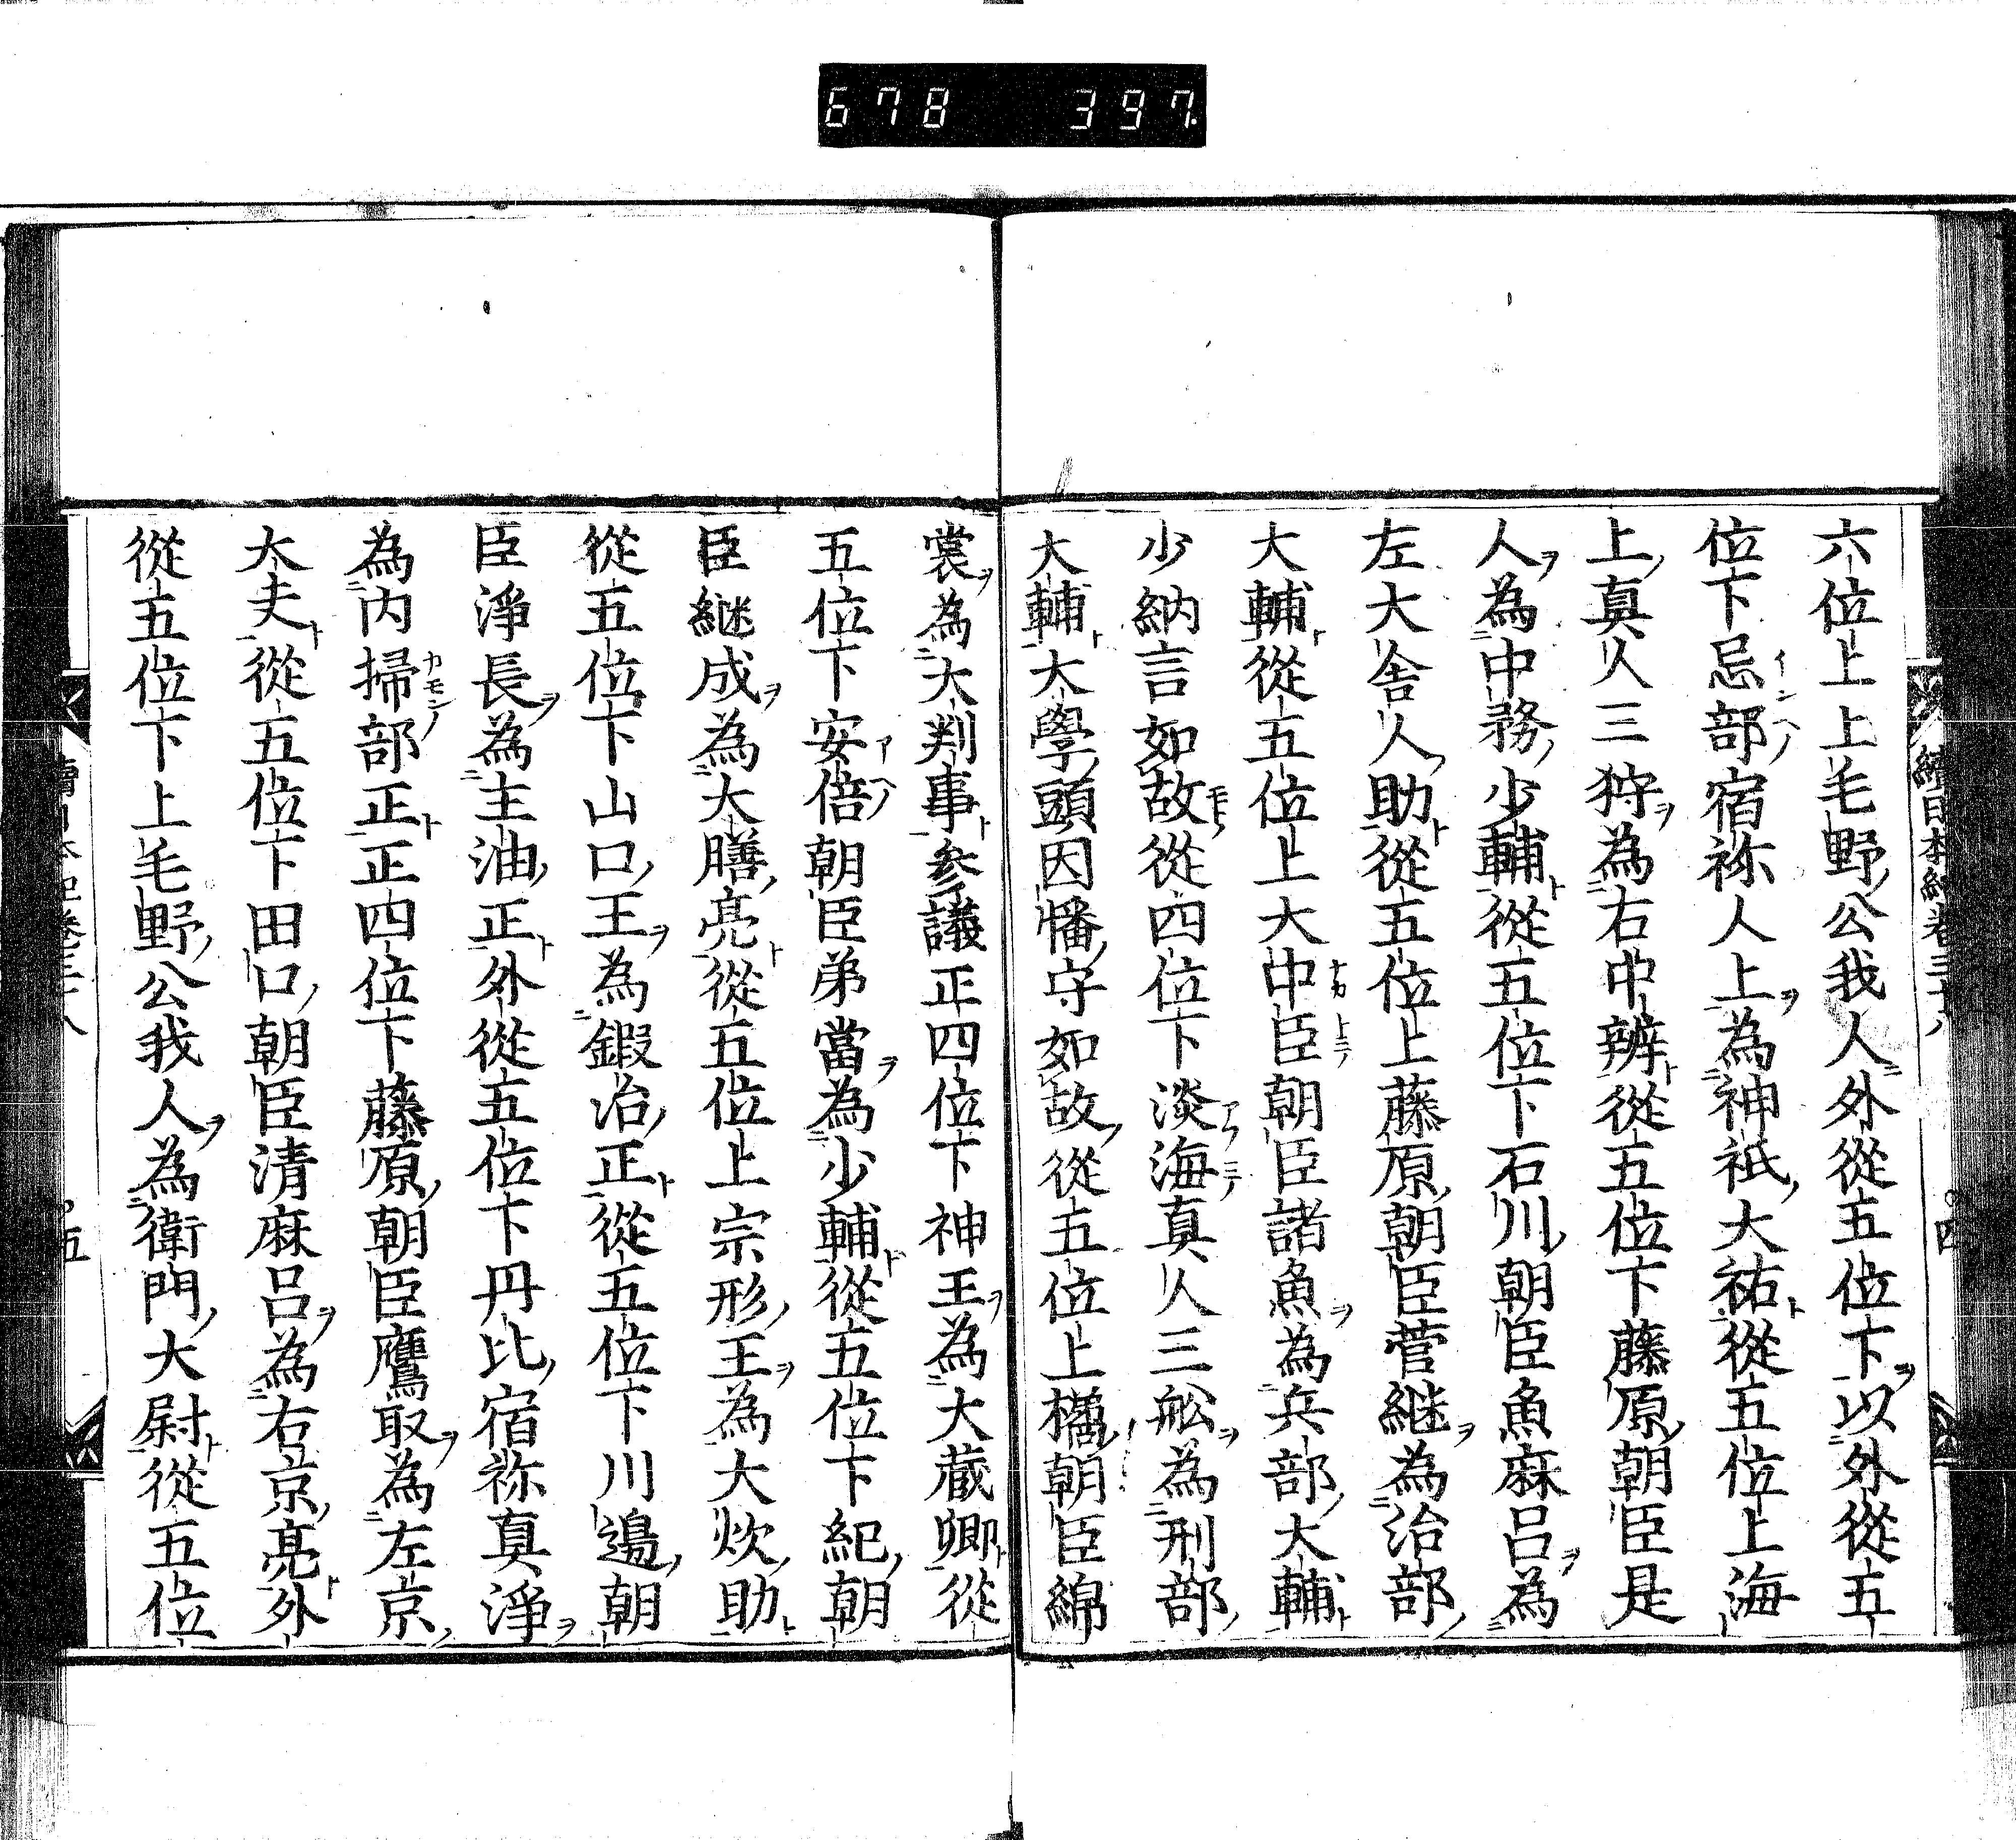 678 397.
續日本紀卷三十八
四
六位上上毛野公我人外從五位下以外從五
位下忌部宿祢人上為神祇大祐從五位上海
上真人三狩為右中辨從五位下藤原朝臣是
人為中務少輔從五位下石川朝臣魚麻呂為
左大舍人助從五位上藤原朝臣菅継為治部
大輔從五位上大中臣朝臣諸魚為兵部大輔
少納言如故從四位下淡海真人三舩為刑部
大輔大學頭因幡守如故從五位上橘朝臣綿
裳為大判事參議正四位下神王為大蔵卿從
五位下安倍朝臣弟當為少輔從五位下紀朝
臣継成為大膳亮從五位上宗形王為大炊助
從五位下山口王為鍛冶正從五位下川邉朝
臣淨長為主油正外從五位下丹比宿祢真淨
為內掃部正正四位下藤原朝臣鷹取為左京
大夫從五位下田口朝臣清麻呂為右京亮外
從五位下上毛野公我人為衛門大尉從五位
五